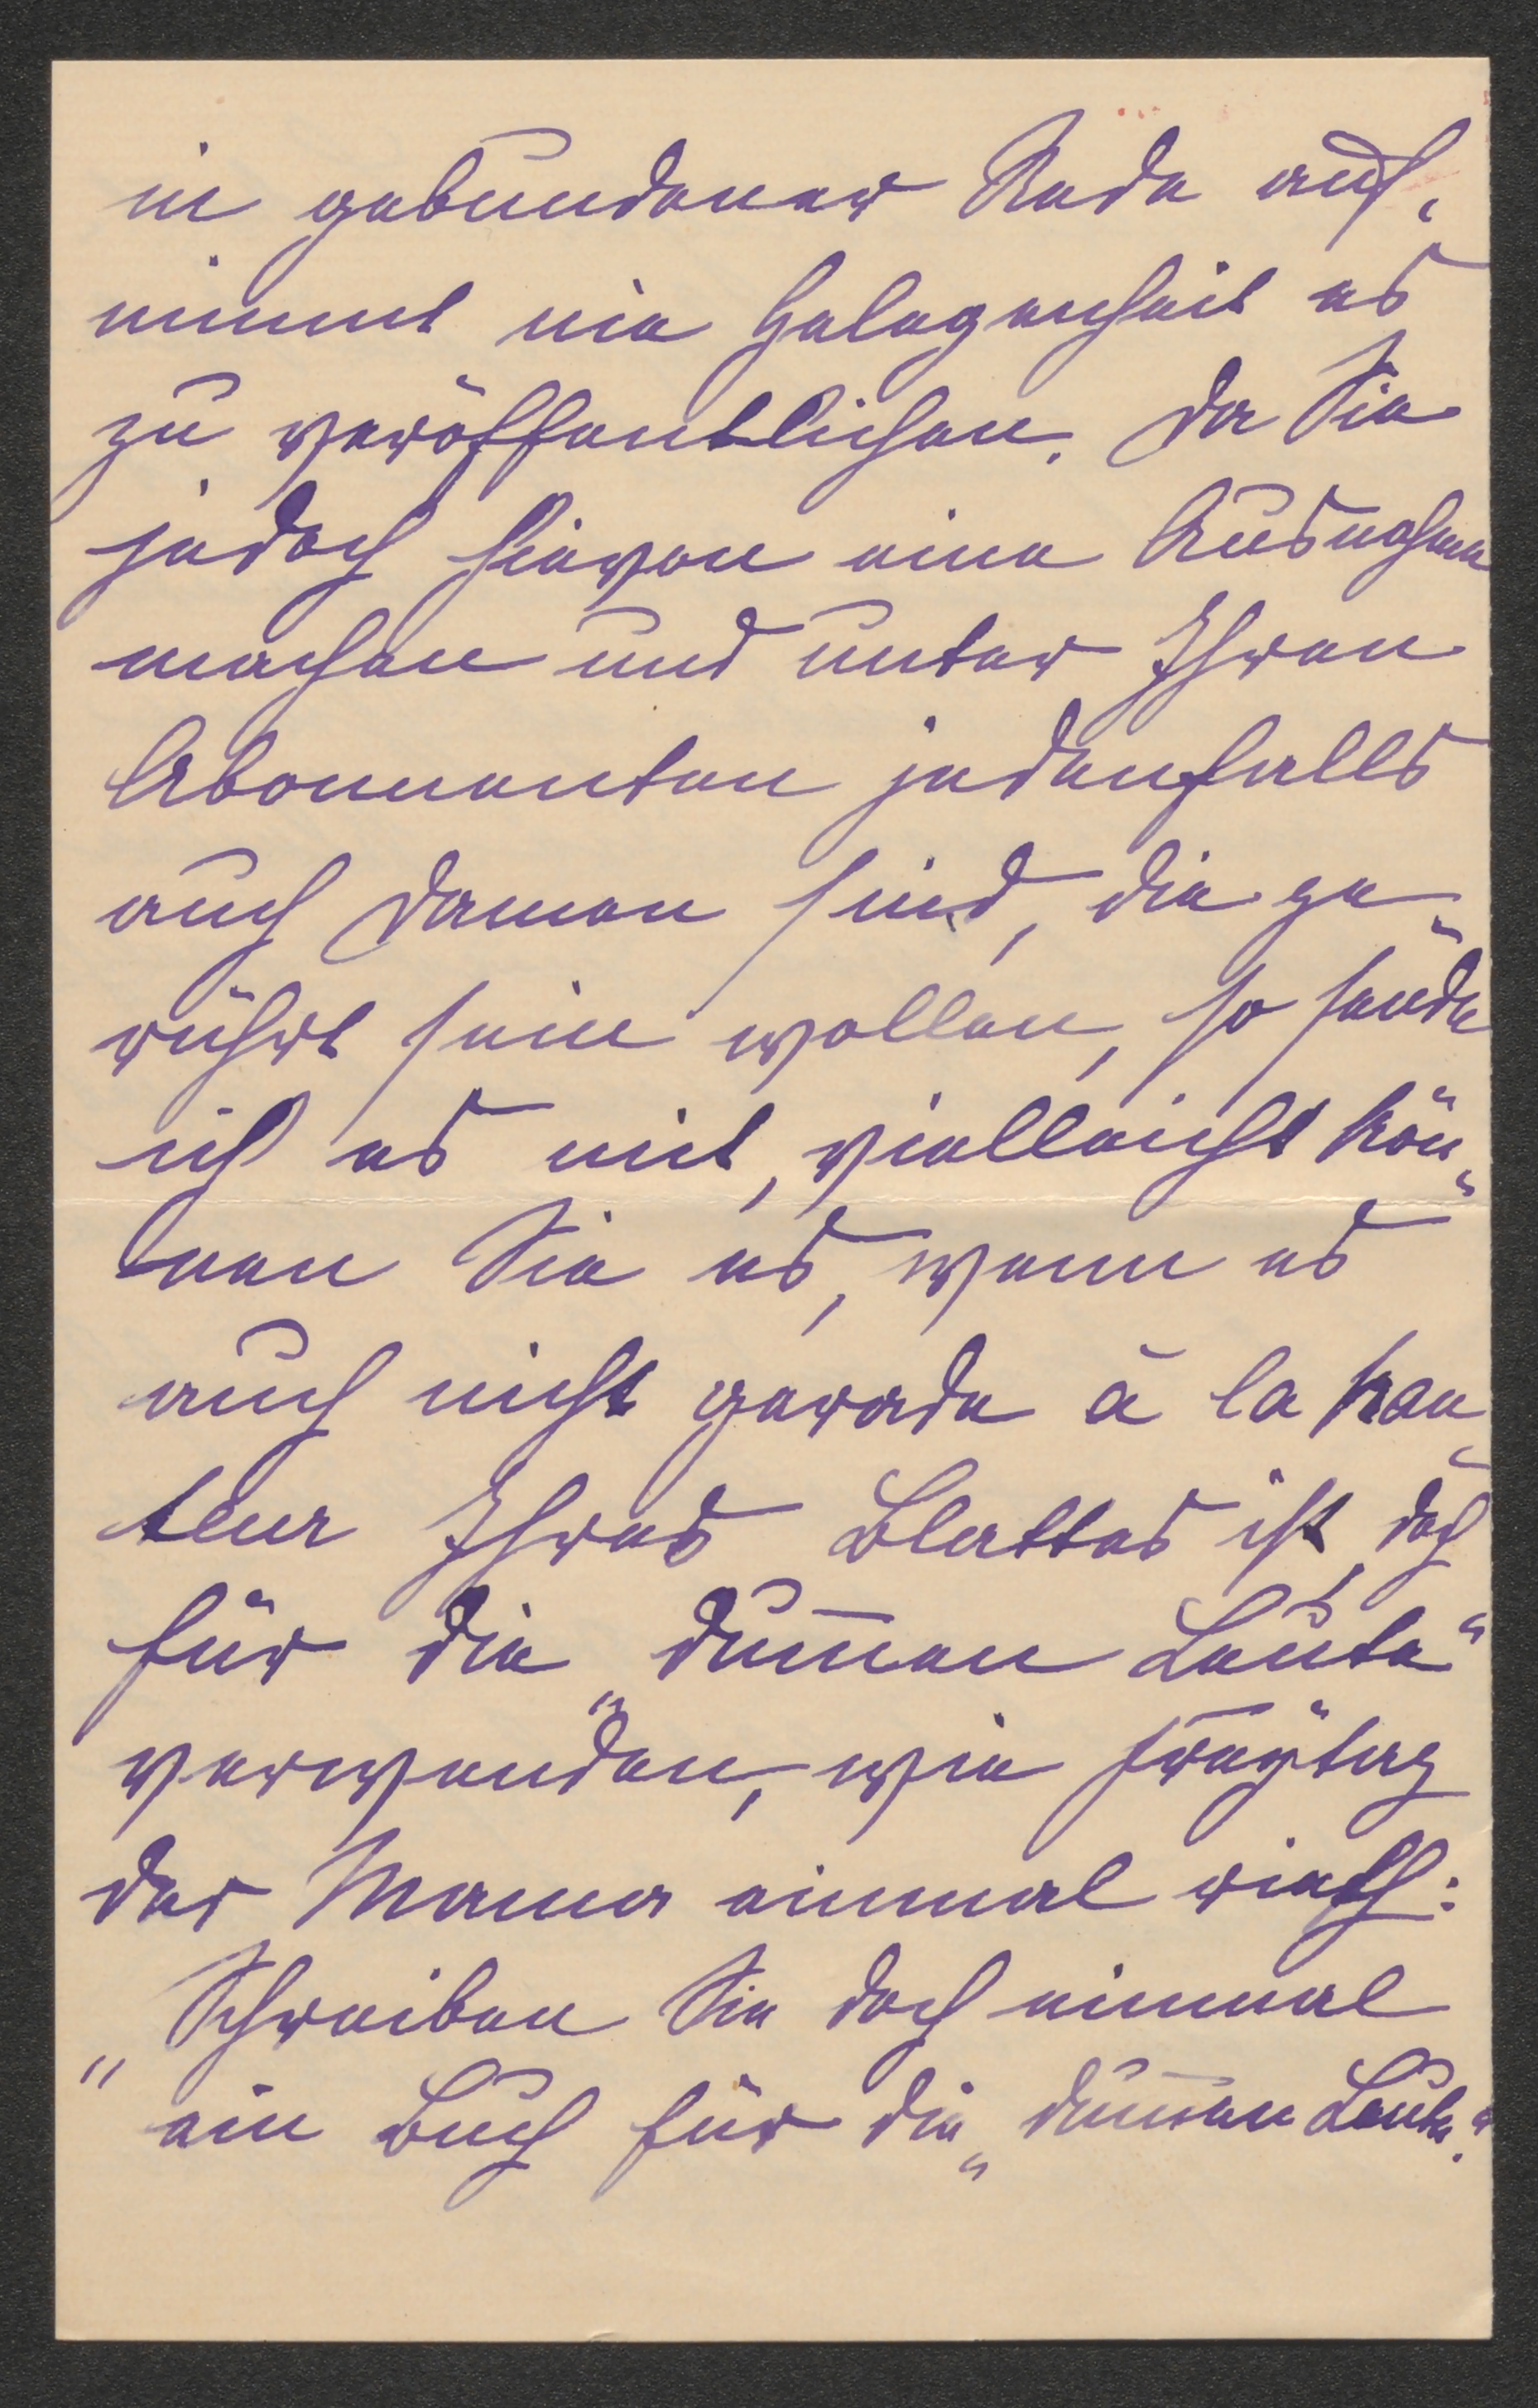 in gebundener Rede auf-
nimmt nie Gelegenheit es
zu veröffentlichen. Da Sie
jedoch hievon eine Ausnahme
machen und unter Ihren
Abonnenten jedenfalls
auch Damen sind, die ge-
rührt sein wollen, so sende
ich es mit, vielleicht kön-
nen Sie es, wenn es
auch nicht gerade à la hau-
teur Ihres Blattes ist, doch
für die „dummen Leute“
verwenden, wie Freytag
der Mama einmal rieth:
„Schreiben Sie doch einmal
ein Buch für die „dummen Leute.“